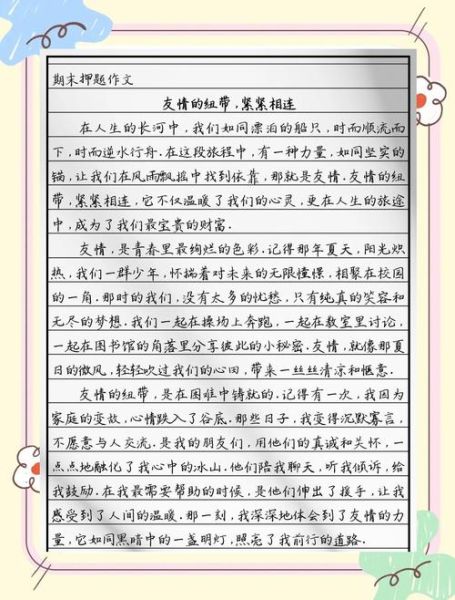 期末押题作文
友情的纽带,紧紧相连
在人生的长河中,我们如同漂泊的船只,时而顺流而
下,时而逆水行舟.在这段旅程中,有一种力量,如同坚实的
锚,让我们在风雨飘摇中找到依靠,那就是友情.友情的纽
带,紧紧相连,它不仅温暖了我们的心灵,更在人生的旅途
中,成为了我们最宝贵的财富.
友情,是青春里最绚烂的色彩.记得那年夏天,阳光炽
热,我们一群少年,怀揣着对未来的无限憧憬,相聚在校园
的一角.那时的我们,没有太多的忧愁,只有纯真的笑容和
无尽的梦想.我们一起在操场上奔跑,一起在教室里讨论,
一起在图书馆的角落里分享彼此的小秘密.友情,就像那夏
日的微风,轻轻吹过我们的心田,带来一丝丝清凉和惬意.
友情的纽带,是在困难中铸就的.记得有一次,我因为
家庭的变故,心情跌入了谷底.那些日子,我变得沉默寡言,
不愿意与人交流.是我的朋友们,用他们的真诚和关怀,一
点点地融化了我心中的冰山.他们陪我聊天,听我倾诉,给
我鼓励.在我最需要帮助的时候,是他们伸出了援手,让我
感受到了人间的温暖.那一刻,我深深地体会到了友情的力
量,它如同黑暗中的一盏明灯,照亮了我前行的道路.